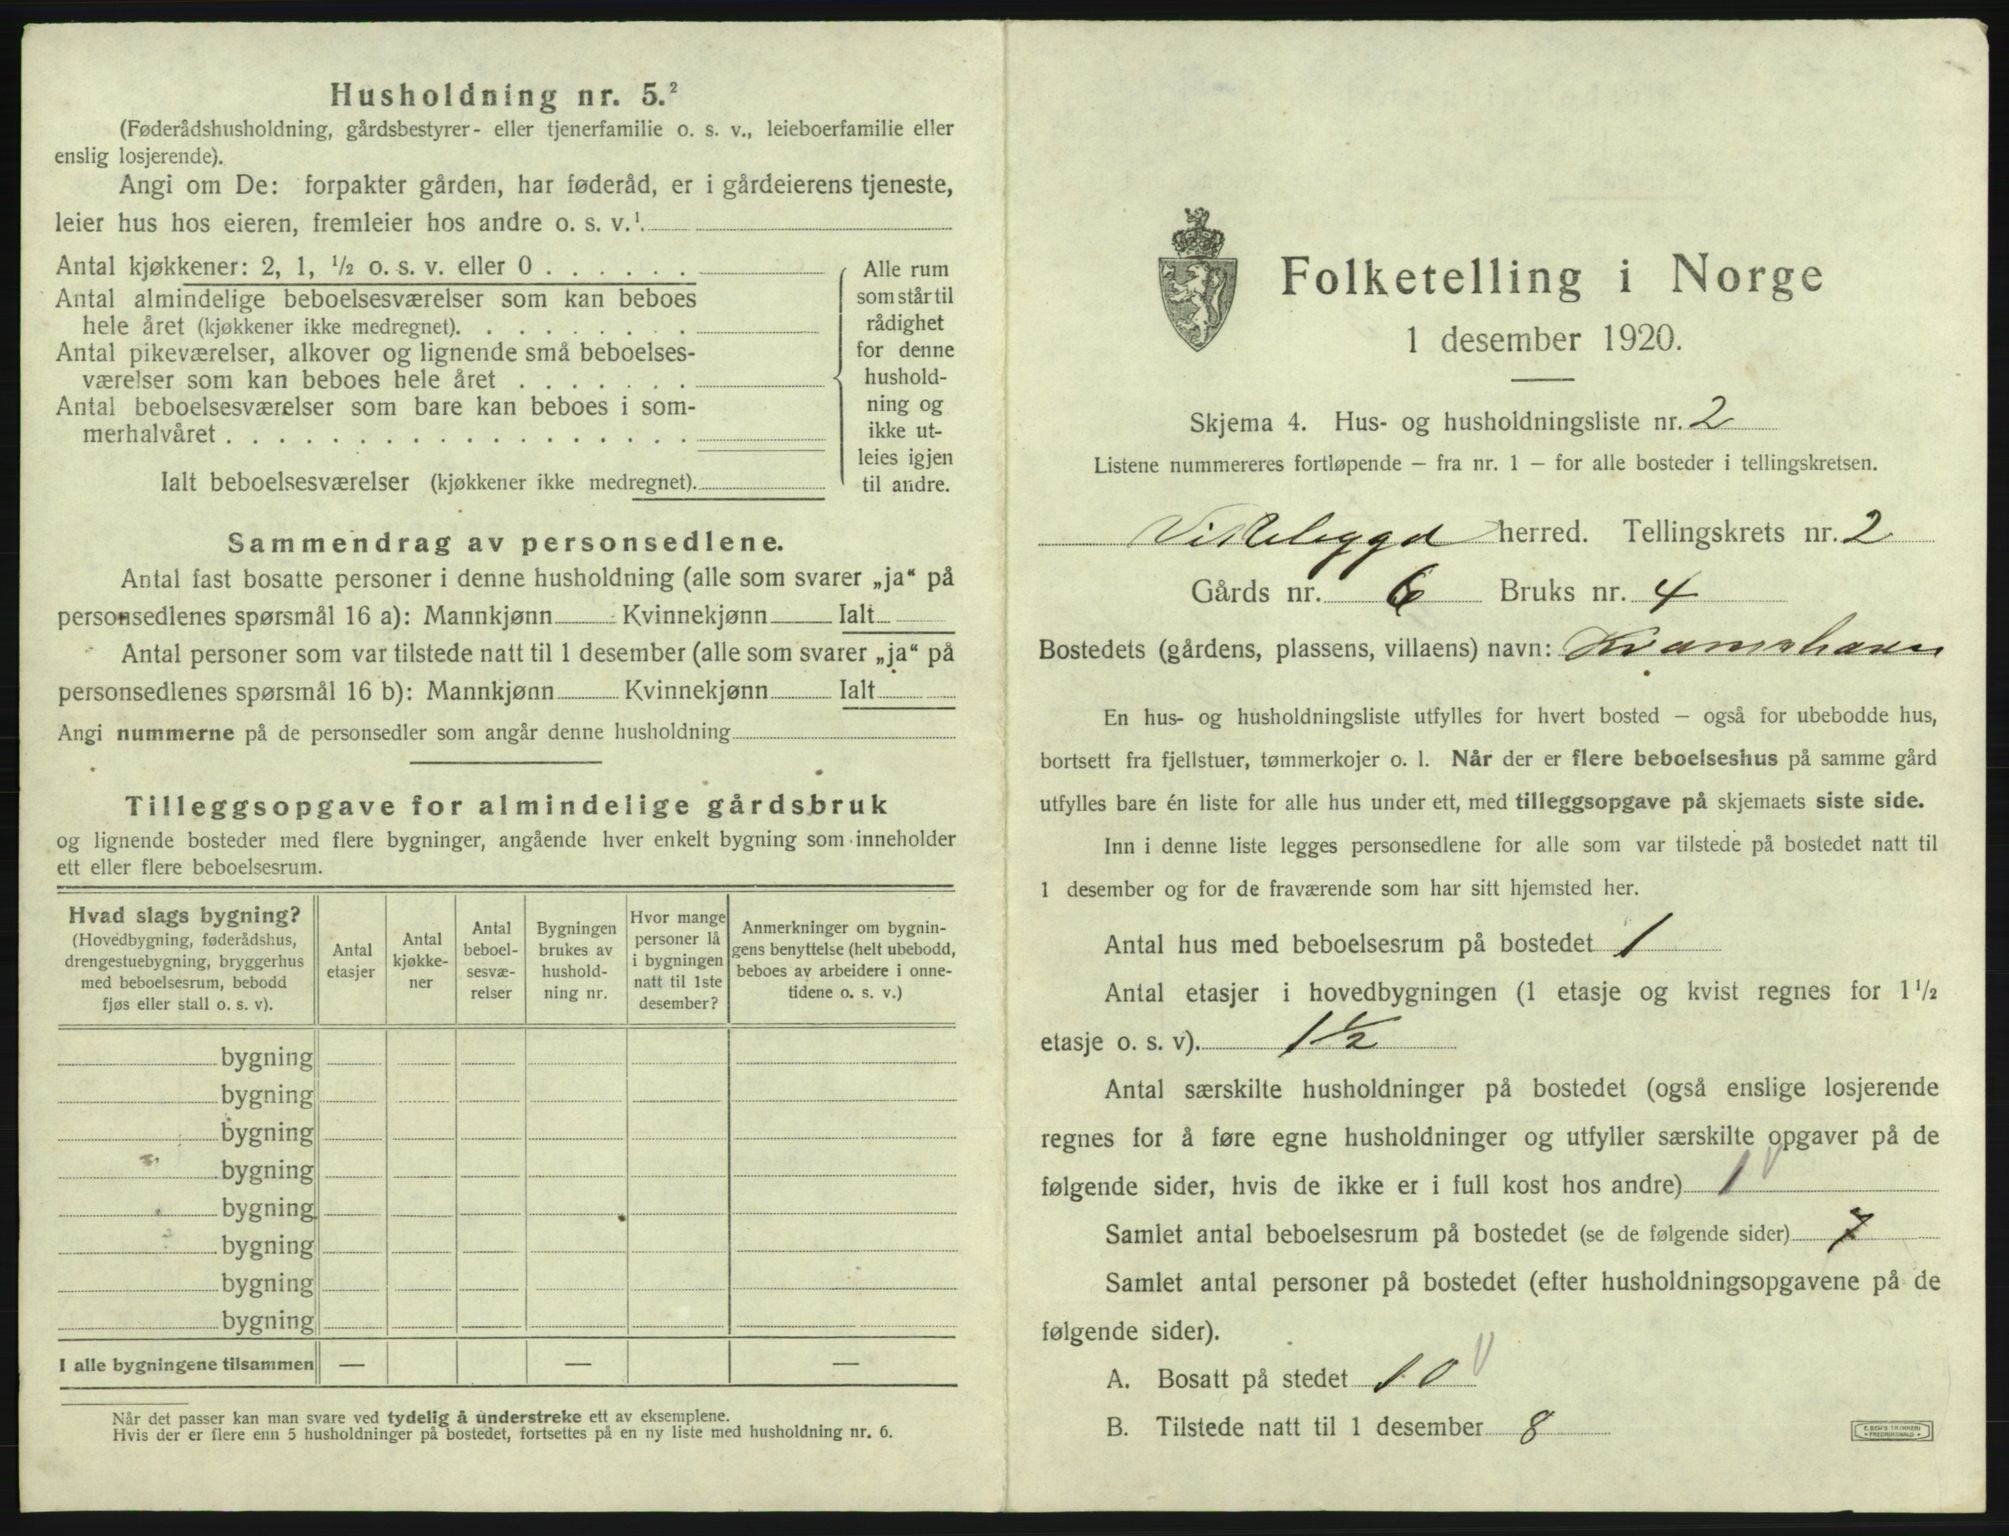 Husholdning nr. 5.²
(Føderådshusholdning, gårdsbestyrer- eller tjenerfamilie o. s. v., leieboerfamilie eller
enslig losjerende).
Angi om De: forpakter gården, har føderåd, er i gårdeierens tjeneste,
leier hus hos eieren, fremleier hos andre o. s. v.¹.
Antal kjøkkener: 2, 1, ½ o. s. v. eller 0 . . . . . .
Antal almindelige beboelsesværelser som kan beboes
hele året (kjøkkener ikke medregnet). . . . . . . . .
Antal pikeværelser, alkover og lignende små beboelses-
værelser som kan beboes hele året . . . . . . .
Antal beboelsesværelser som bare kan beboes i som-
merhalvåret . . . . . . . . . . . . . . . . . .
Ialt beboelsesværelser (kjøkkener ikke medregnet).
Alle rum
som står til
rådighet
for denne
hushold-
ning og
ikke ut-
leies igjen
til andre.
Sammendrag av personsedlene.
Antal fast bosatte personer i denne husholdning (alle som svarer „ja“ på
personsedlenes spørsmål 16 a): Mannkjønn Kvinnekjønn Ialt
Antal personer som var tilstede natt til 1 desember (alle som svarer „ja“ på
personsedlenes spørsmål 16 b): Mannkjønn Kvinnekjønn Ialt
Angi nummerne på de personsedler som angår denne husholdning
Tilleggsopgave for almindelige gårdsbruk
og lignende bosteder med flere bygninger, angående hver enkelt bygning som inneholder
ett eller flere beboelsesrum.
Hvad slags bygning?
(Hovedbygning, føderådshus,
drengestuebygning, bryggerhus
med beboelsesrum, bebodd
fjøs eller stall o. s. v).
Antal
etasjer
Antal
kjøkke-
ner
Antal
beboel-
sesvæ-
relser
Bygningen
brukes av
hushold-
ning nr.
Hvor mange
personer lå
i bygningen
natt til 1ste
desember?
Anmerkninger om bygnin-
gens benyttelse (helt ubebodd,
beboes av arbeidere i onne-
tidene o. s. v.)
bygning
bygning
bygning
bygning
bygning
bygning
bygning
bygning
I alle bygningene tilsammen — — —
Når det passer kan man svare ved tydelig å understreke ett av eksemplene.
Hvis der er flere enn 5 husholdninger på bostedet, fortsettes på en ny liste med husholdning nr. 6.
Folketelling i Norge
1 desember 1920.
Skjema 4. Hus- og husholdningsliste nr. 2
Listene nummereres fortløpende – fra nr. 1 – for alle bosteder i tellingskretsen.
Vikebygd herred. Tellingskrets nr. 2
Gårds nr. 6 Bruks nr. 4
Bostedets (gårdens, plassens, villaens) navn: Kvamshavn
En hus- og husholdningsliste utfylles for hvert bosted – også for ubebodde hus,
bortsett fra fjellstuer, tømmerkojer o. l. Når der er flere beboelseshus på samme gård
utfylles bare én liste for alle hus under ett, med tilleggsopgave på skjemaets siste side.
Inn i denne liste legges personsedlene for alle som var tilstede på bostedet natt til
1 desember og for de fraværende som har sitt hjemsted her.
Antal hus med beboelsesrum på bostedet 1
Antal etasjer i hovedbygningen (1 etasje og kvist regnes for 1½
etasje o. s. v). 1½
Antal særskilte husholdninger på bostedet (også enslige losjerende
regnes for å føre egne husholdninger og utfyller særskilte opgaver på de
følgende sider, hvis de ikke er i full kost hos andre) 1
Samlet antal beboelsesrum på bostedet (se de følgende sider) 7
Samlet antal personer på bostedet (efter husholdningsopgavene på de
følgende sider).
A. Bosatt på stedet 10
B. Tilstede natt til 1 desember 8